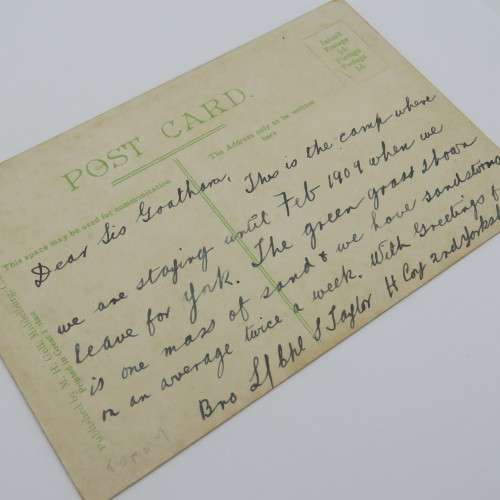 POST CARD.
Inland
Postage
½d.
Foreign
Postage
1d.
This space may be used for communication
The Address only to be written
here
Dear Sis Goatham, This is the camp where
we are staying until Feb 1909 when we
leave for York. The green grass shown
is one mass of sand & we have sandstorms
on an average twice a week. With Greetings f
Bro L/Cpl S Taylor H Coy 2nd Yorksh
Published by M. H.